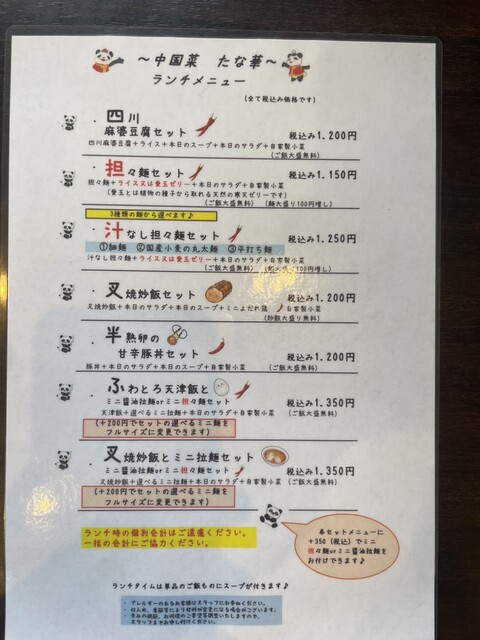 ～中国菜 たな華～
ランチメニュー
(全て税込み価格です)
・四川
麻婆豆腐セット 税込み1.200円
四川麻婆豆腐+ライス+本日のスープ+本日のサラダ+自家製小菜
(ご飯大盛無料)
・担々麺セット 税込み1.150円
担々麺+ライス又は愛玉ゼリー+本日のサラダ+自家製小菜
(愛玉とは植物の種子から取れる天然の寒天ゼリーです)
(ご飯大盛無料) (麺大盛り100円増し)
3種類の麺から選べます♪
・汁なし担々麺セット 税込み1.250円
①細麺 ②国産小麦の丸太麺 ③平打ち麺
汁なし担々麺+ライス又は愛玉ゼリー+本日のサラダ+自家製小菜
(ご飯大盛無料) (麺大盛り100円増し)
・叉焼炒飯セット 税込み1.200円
叉焼炒飯+本日のサラダ+本日のスープ+ミニよだれ鶏 自家製小菜
(炒飯大盛り無料)
・半熟卵の
甘辛豚丼セット 税込み1.200円
豚丼+本日のサラダ+本日のスープ+自家製小菜 (ご飯大盛無料)
・ふわとろ天津飯と
ミニ醤油拉麺orミニ担々麺セット 税込み1.350円
天津飯+選べるミニ拉麺+本日のサラダ+自家製小菜 (ご飯大盛無料)
(+200円でセットの選べるミニ麺を
フルサイズに変更できます)
・叉焼炒飯とミニ拉麺セット
ミニ醤油拉麺orミニ担々麺セット 税込み1.350円
叉焼炒飯+選べるミニ拉麺+本日のサラダ+自家製小菜 (ご飯大盛無料)
(+200円でセットの選べるミニ麺を
フルサイズに変更できます)
ランチ時の個別会計はご遠慮ください。
一括の会計にご協力ください。
各セットメニューに
+350(税込)でミニ
担々麺orミニ醤油拉麺を
お付けできます♪
ランチタイムは単品のご飯ものにスープが付きます♪
・アレルギーのあるお客様はスタッフにお尋ねください。
スタッフまでお申し付けください。